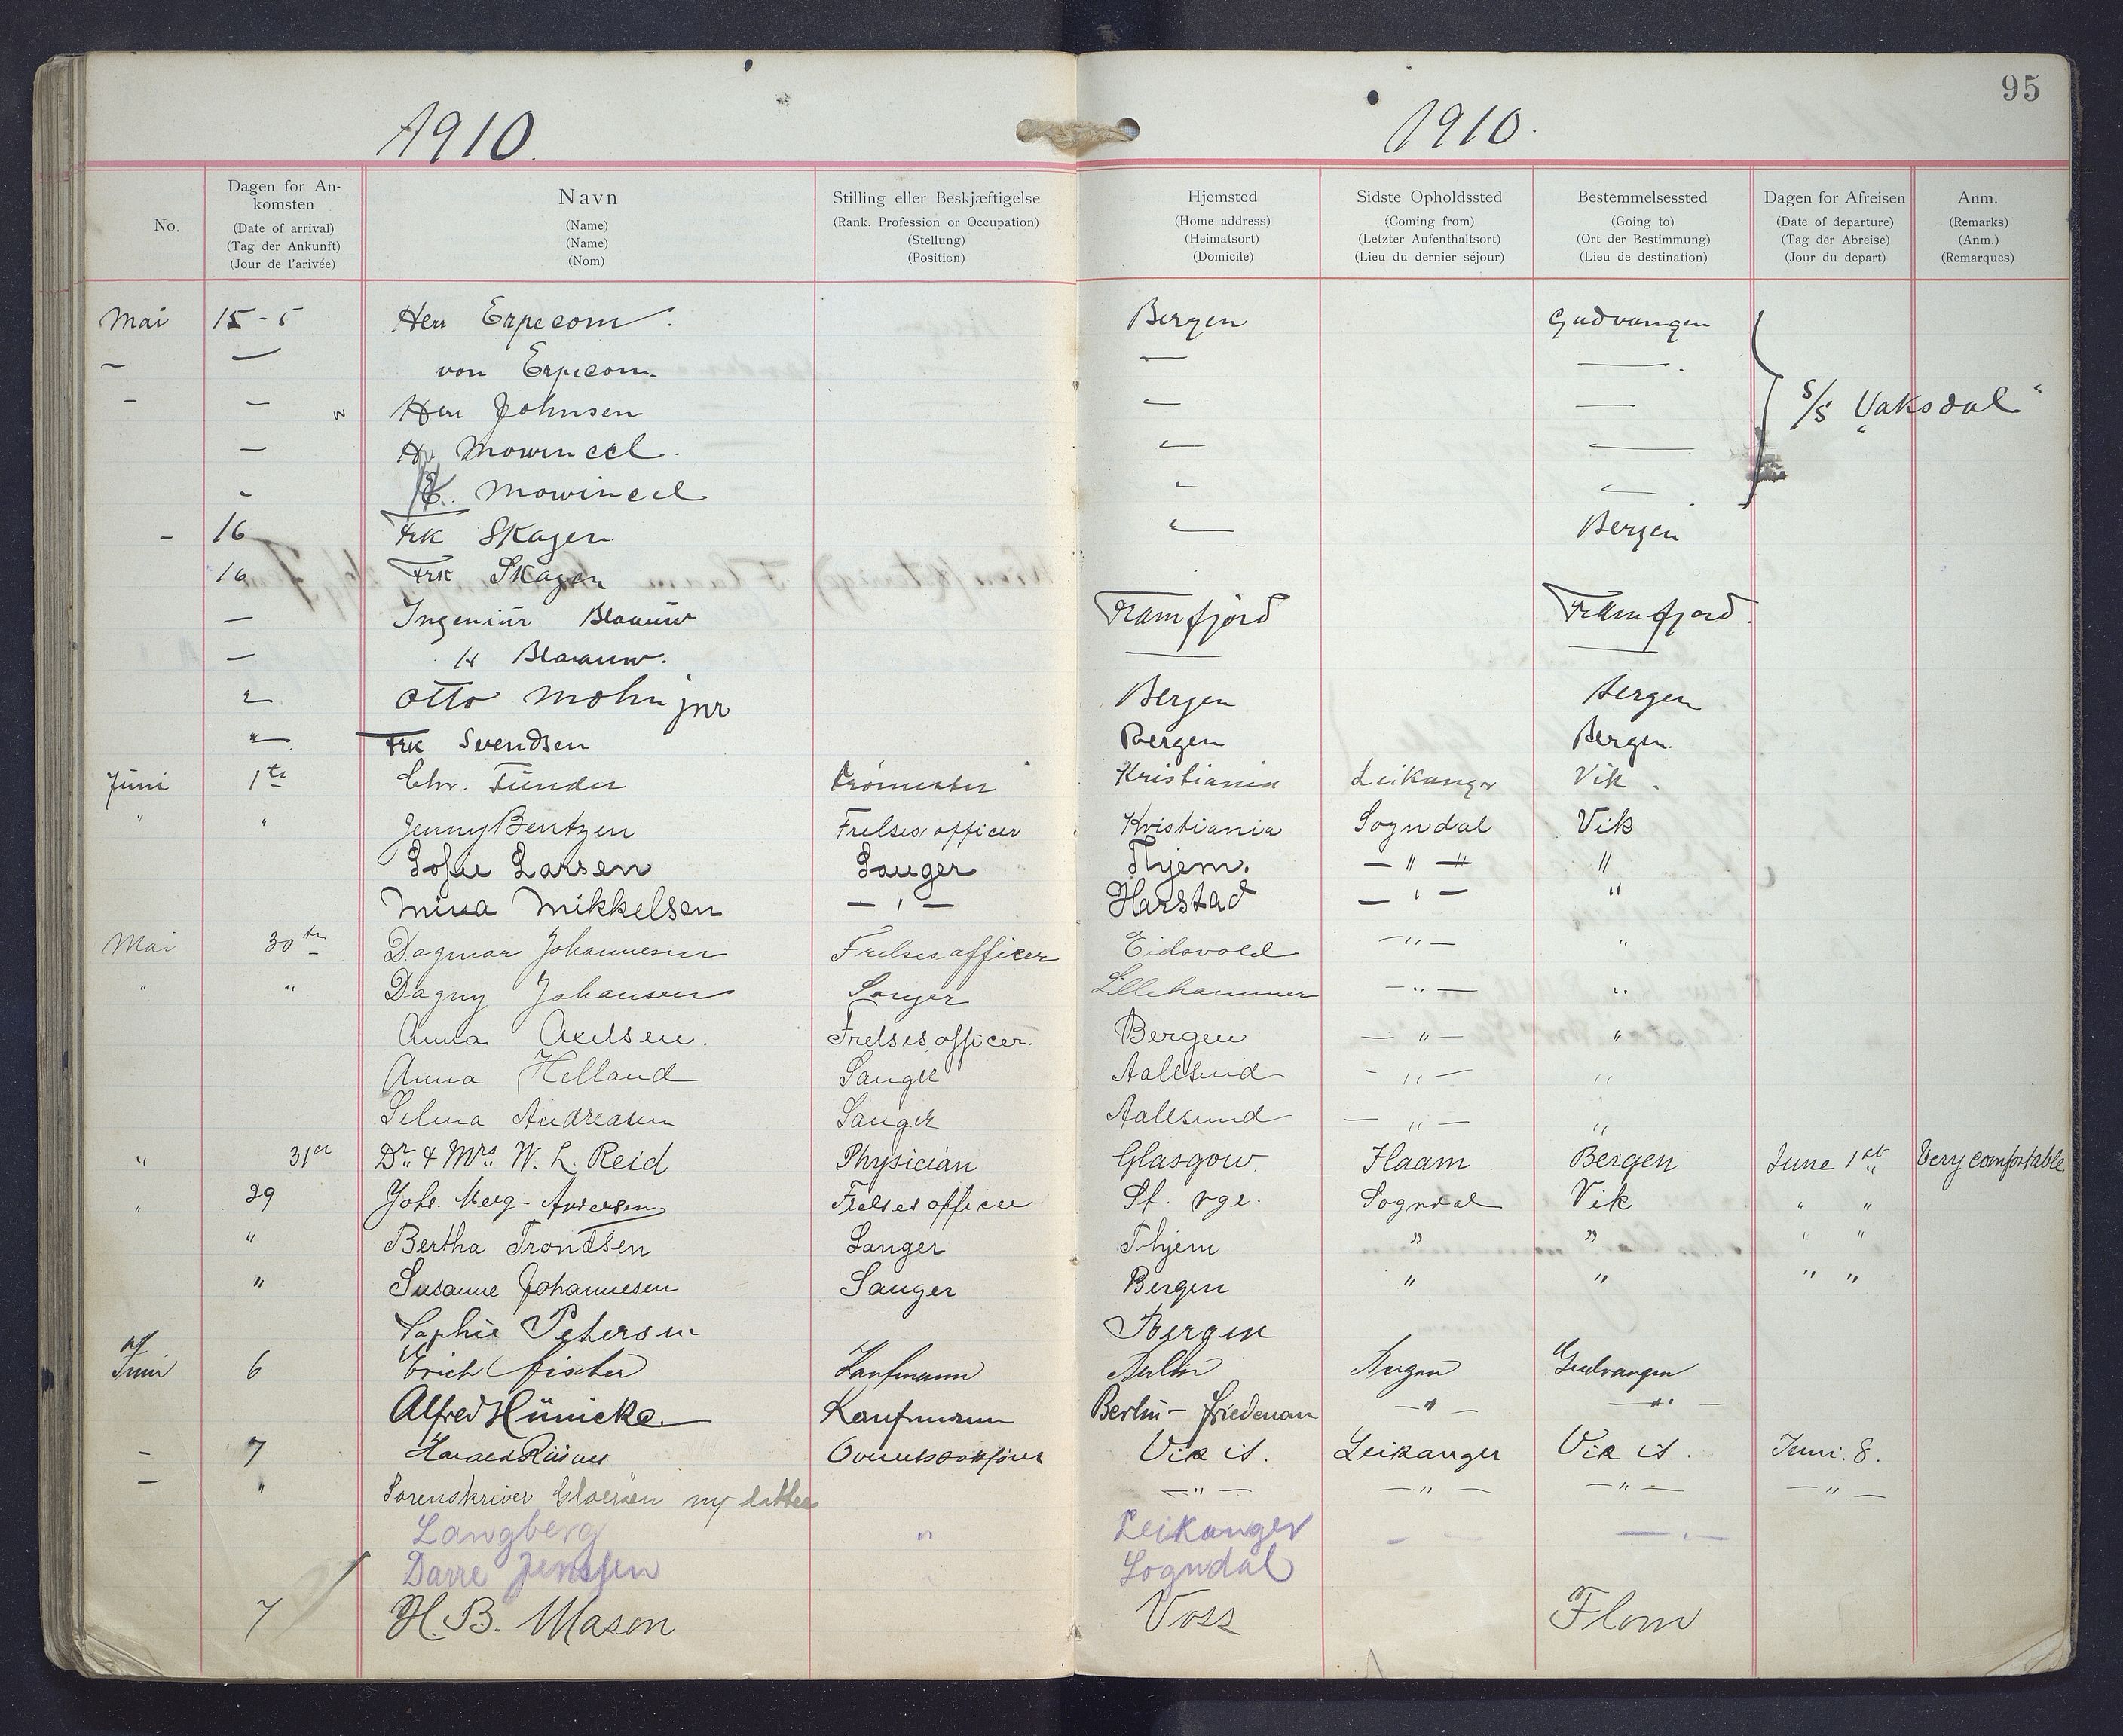 95
1910. 1910.
No. Dagen for Ankomsten (Date of arrival) (Tag der Ankunft) (Jour de l'arivée) Navn (Name) (Name) (Nom) Stilling eller Beskjæftigelse (Rank, Profession or Occupation) (Stellung) (Position) Hjemsted (Home address) (Heimatsort) (Domicile) Sidste Opholdssted (Coming from) (Letzter Aufenthaltsort) (Lieu du dernier séjour) Bestemmelsessted (Going to) (Ort der Bestimmung) (Lieu de destination) Dagen for Afreisen (Date of departure) (Tag der Abreise) (Jour du depart) Anm. (Remarks) (Anm.) (Remarques)
Mai 15-5 Herr Erpecom. Bergen Gudvangen
— — von Erpecom. — —
- — Herr Johnsen — — S/S "Vaksdal"
— Mowinccel. — —
- Mowinccel - —
- 16 Frk Skagen — Bergen
16 Frk Skagen
— Ingeniör Blaauw Framfjord Framfjord.
— H Blaauw.
" Otto Mohn jnr Bergen Bergen
" Frk Svendsen Bergen Bergen.
Juni 1te Chr. Tünder Kristiania Leikanger Vik.
" " Jenny Bentzen Frelsesofficer Kristiania Sogndal Vik
Sofie Larsen Sanger Thjem. — " — "
Mina Mikkelsen — " — Harstad — " — "
Mai 30te Dagmar Johannesen Frelsesofficer Eidsvold — " — "
" " Dagny Johansen Sanger Lillehammer — " — "
Anna Axelsen. Frelsesofficer. Bergen — " — "
Anna Helland Sanger Aalesund — " — "
Selma Andreasen Sanger Aalesund — " — "
" 31st Dr. & Mrs. W. L. Reid Physician Glasgow. Flaam Bergen June 1st Very comfortable.
" 29 Johs. -Andersen Frelsesofficer St. vgr. Sogndal Vik " "
" Bertha Trondsen Sanger Thjem " " " "
" Susanne Johannesen Sanger Bergen " " " "
Sophie Petersen Bergen
Juni 6 Erich Fischer Kaufmann Berlin Bergen Gudvangen
Alfred Hünicke Kaufmann Berlin - Friedenau — " — — " —
- 7 Harald Vik i S. Leikanger Vik i S. Juni. 8.
— " Sorenskriver m/ datter — " — — " — — " — — " —
Langberg " Leikanger - - — " —
Darre Jenssen Sogndal
7 H. B. Mason Voss Flom